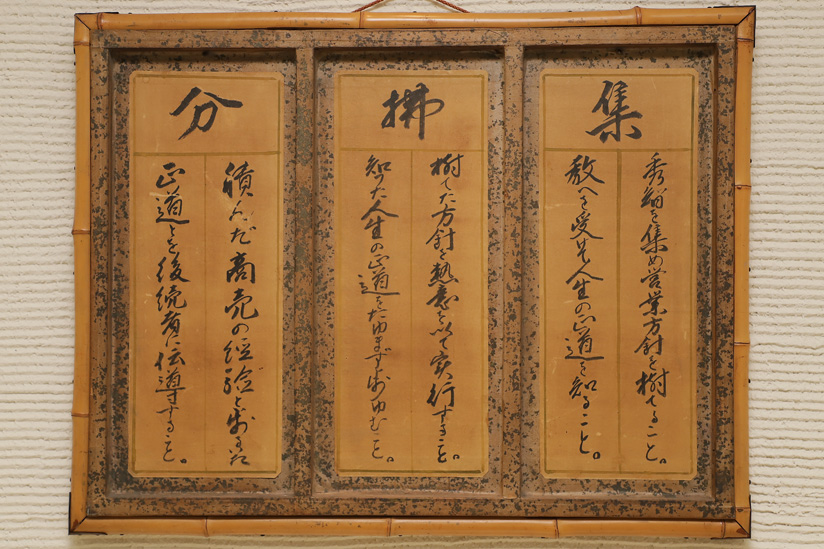 集
を集め営業方針を樹てること。
教へを受けて人生の正道を知ること。
拂
樹てた方針を熱意を以て実行すること。
知つた人生の正道をたゆまず歩ゆむこと。
分
積んだ商売の経験と歩んだ
正道とを後続者に伝導すること。